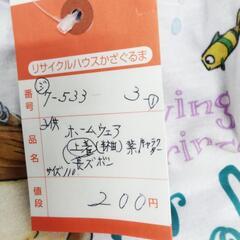 リサイクルハウスかざぐるま
番号 ジ 7-533 3-①
品名 子供
ホームウェア
上着(長袖)紫
長ズボン
サイズ110
値段 200円
ing
rin